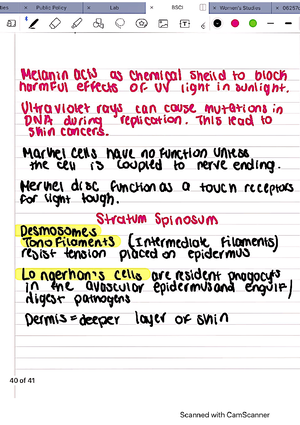 Public Policy
Lab
BSCI
Women's Studies
Melanin acts as chemical sheild to block
harmful effects of UV light in sunlight.
Ultraviolet rays can cause mutations in
DNA during replication. This lead to
skin cancers.
Markel cells have no function unless
the cell is coupled to nerve ending.
Merkel disc function as a touch receptors
for light tough.
Stratum Spinosum
Desmosomes
Tonofilaments (Intermediate Filaments)
resist tension placed on epidermus
Langerhan's cells are resident phagocyts
in the avascular epidermus and engulf/
digest pathogens
Dermis = deeper layer of skin
40 of 41
Scanned with CamScanner